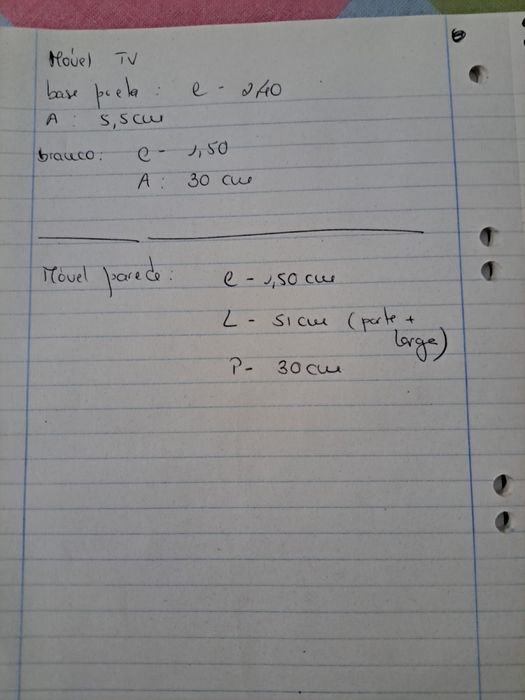 Móvel TV
base preta: C - 240
A: 5,5cm
branco: C - 1,50
A: 30 cm
Móvel parede: C - 1,50 cm
L - 51 cm (parte +
large)
P- 30 cm